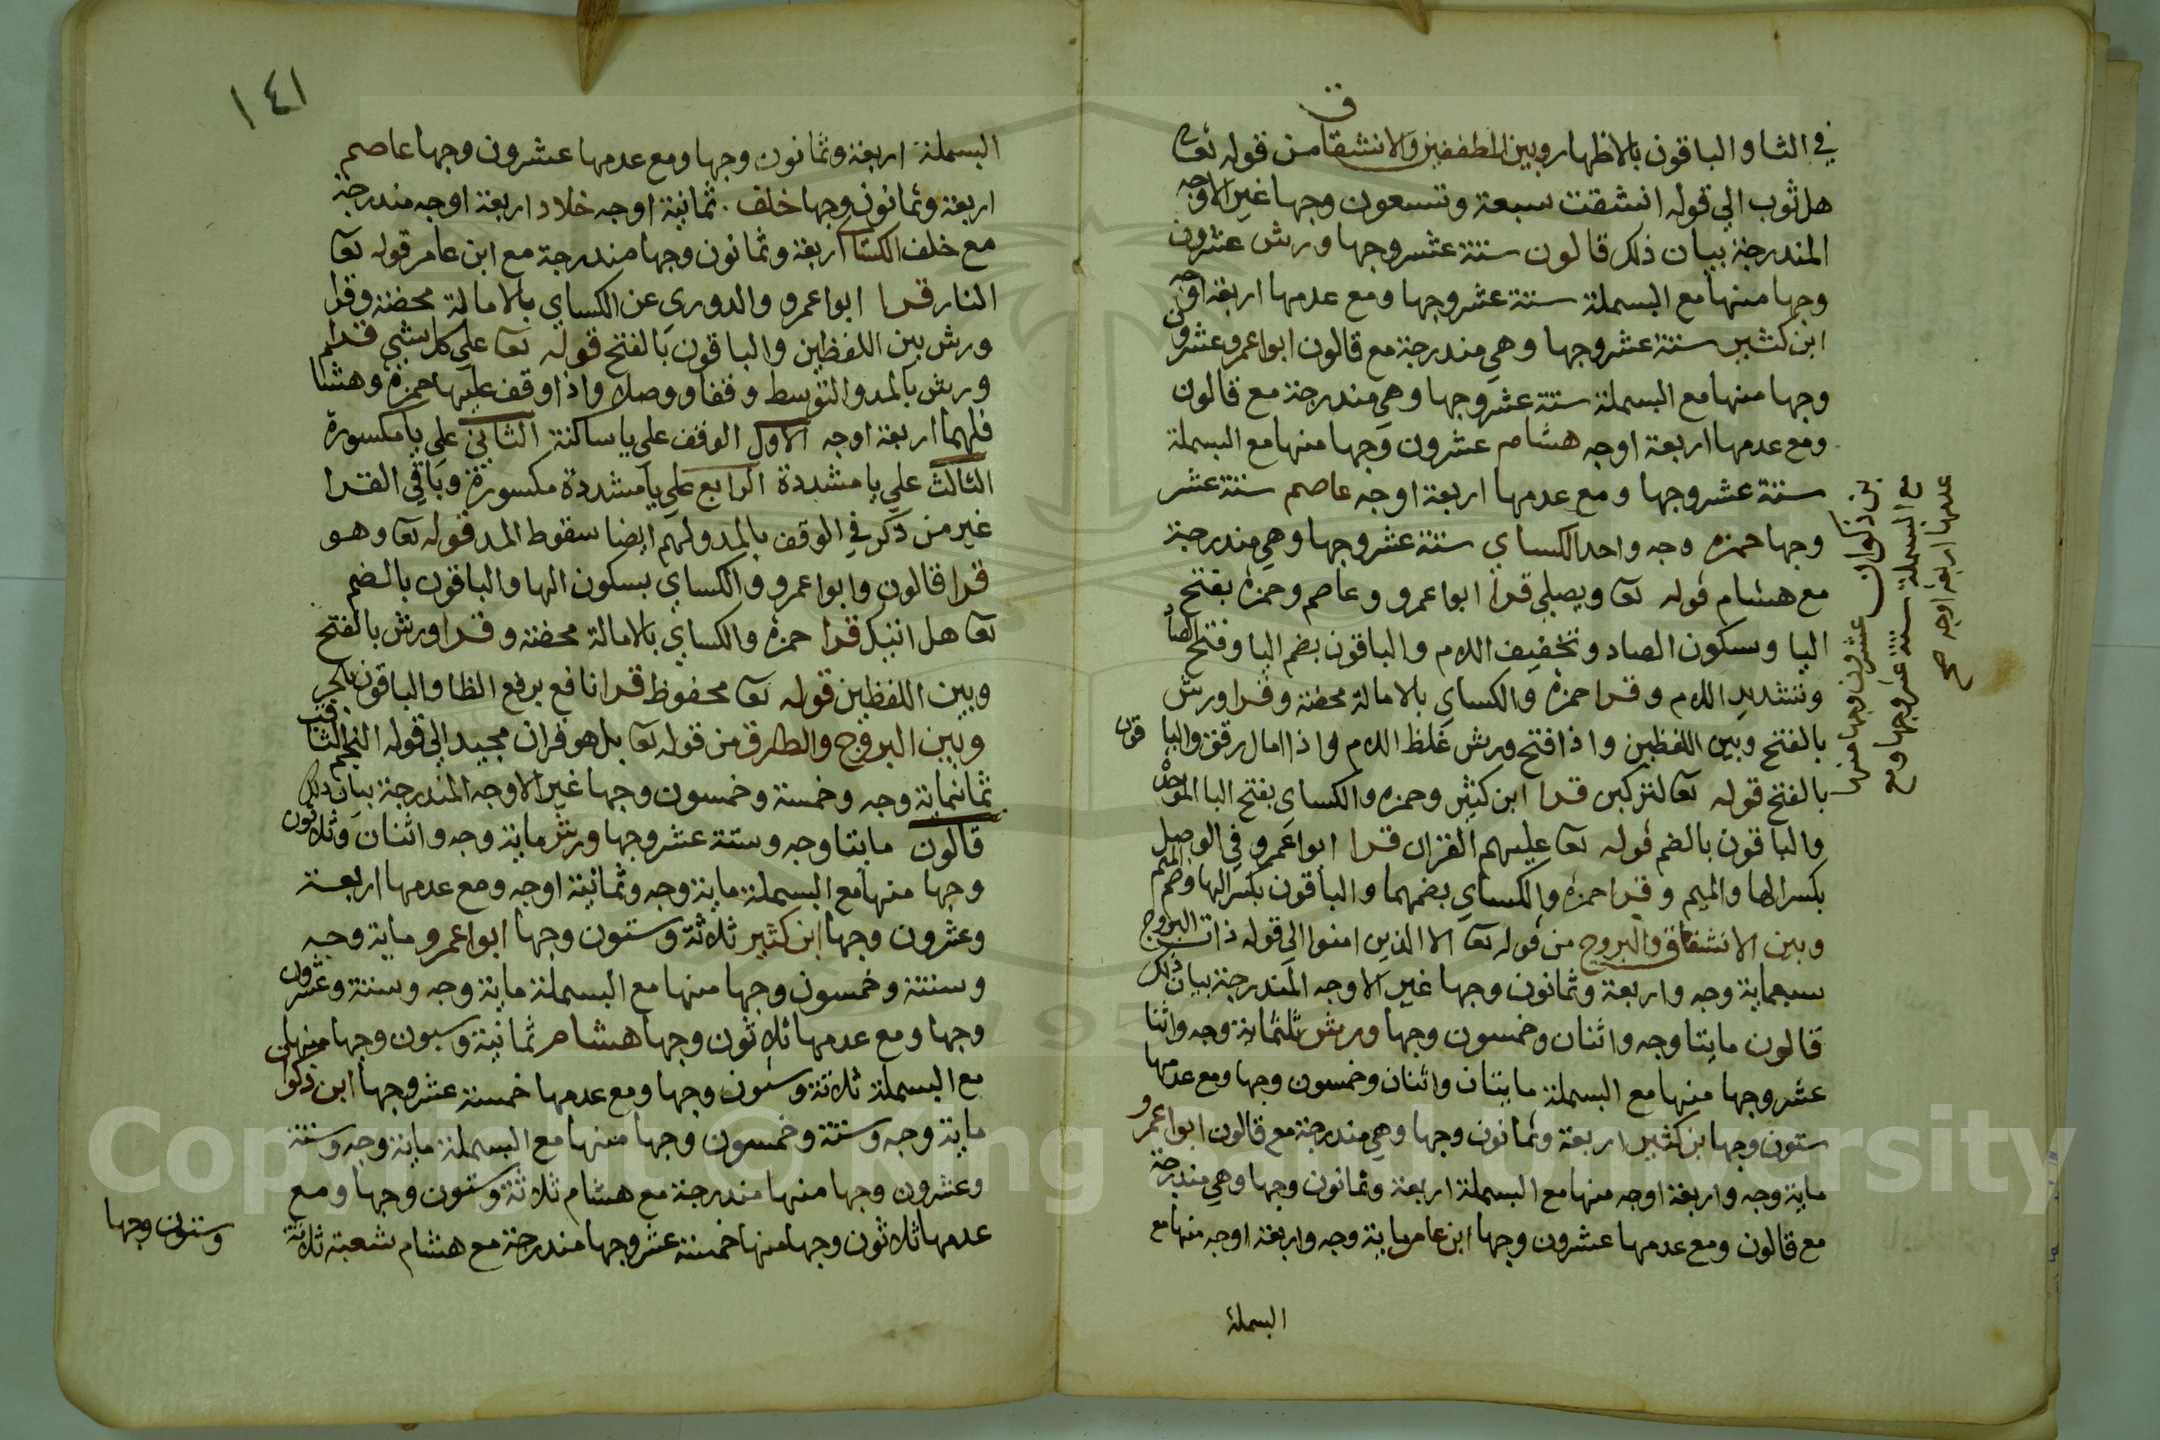 في الثا والباقون بالاظهار وبين المطففين والانشقاق من قوله تعالى
هل ثوب الي قوله انشقت سبعة وتسعون وجها غير الاوجه
المندرجة بيان ذلك قالون ستة عشر وجها ورش عشرون
وجها منها مع البسملة ستة عشر وجها ومع عدمها اربعة اوجه
ابن كثير ستة عشر وجها وهي مندرجة مع قالون ابوا عمرو عشرون
وجها منها مع البسملة ستة عشر وجها وهي مندرجة مع قالون
ومع عدمها اربعة اوجه هشام عشرون وجها منها مع البسملة
ستة عشر وجها ومع عدمها اربعة اوجه عاصم ستة عشر
وجها حمزه وجه واحد الكساي ستة عشر وجها وهي مندرجة
مع هشام قوله تعا ويصلي قرا ابوا عمرو وعاصم وحمزة بفتح
اليا وسكون الصاد وتخفيف اللام والباقون بضم اليا وفتح الصاد
وتشديد اللام وقرا حمزة والكساي بالامالة محضة وقرا ورش
بالفتح وبين اللفظين واذا فتح ورش غلظ اللام واذا امال رقق والباقون
بالفتح قوله تعا لتركبن قرا ابن كثير وحمزه والكساي بفتح البا الموحدة
والباقون بالضم قوله تعا عليهم القران قرا ابوا عمرو في الوصل
بكسر الها والميم وقرا حمزه والكساي بضمهما والباقون بكسر الها وضم الميم
وبين الانشقاق والبروج من قوله تعا الا الذين امنوا الي قوله ذات البروج
سبعماية وجه واربعة وثمانون وجها غير الاوجه المندرجة بيان ذلك
قالون مايتا وجه واثنان وخمسون وجها ورش ثلثماية وجه واثنا
عشر وجها منها مع البسملة مايتان واثنان وخمسون وجها ومع عدمها
ستون وجها بن كثير اربعة وثمانون وجها وهي مندرجة مع قالون ابوا عمرو
ماية وجه واربعة اوجه منها مع البسملة اربعة وثمانون وجها وهي مندرجة
مع قالون ومع عدمها عشرون وجها ابن عامر ماية وجه واربعة اوجه منها مع
البسملة
بن ذكوان عشرون وجها منها
مع البسملة ستة عشر وجها ومع
عدمها اربعة اوجه صح
١٤١
البسملة اربعة وثمانون وجها ومع عدمها عشرون وجها عاصم
اربعة وثمانون وجها خلف ثمانية اوجه خلاد اربعة اوجه مندرجة
مع خلف الكسا اربعة وثمانون وجها مندرجة مع ابن عامر قوله تعا
النار قرا ابوا عمرو والدوري عن الكساي بالامالة محضة وقرا
ورش بين اللفظين والباقون بالفتح قوله تعا علي كل شي قرا
ورش بالمد والتوسط وقفا ووصلا واذا وقف عليها حمزة وهشام
فلهما اربعة اوجه الاول الوقف علي يا ساكنة الثاني علي يا مكسورة
الثالث علي يا مشددة الرابع علي يا مشددة مكسورة وباقي القرا
غير من ذكر في الوقف بالمد ولهم ايضا سقوط المد قوله تعا وهو
قرا قالون وابوا عمرو والكساي بسكون الها والباقون بالضم
تعا هل اتيك قرا حمزة والكساي بالامالة محضة وقرا ورش بالفتح
وبين اللفظين قوله تعا محفوظ قرا نافع برفع الظا والباقون بالجر
وبين البروج والطارق من قوله تعا بل هو قران مجيد الي قوله النجم الثاقب
ثمانماية وجه وخمسة وخمسون وجها غير الاوجه المندرجة بيان ذلك
قالون مايتا وجه وستة عشر وجها ورش ماية وجه واثنان وثلاثون
وجها منها مع البسملة ماية وجه وثمانية اوجه ومع عدمها اربعة
وعشرون وجها ابن كثير ثلاثة وستون وجها ابوا عمرو ماية وجه
وستة وخمسون وجها منها مع البسملة ماية وجه وستة وعشرون
وجها ومع عدمها ثلاثون وجها هشام ثمانية وسبعون وجها منها
مع البسملة ثلاثة وستون وجها ومع عدمها خمسة عشر وجها ابن ذكوان
ماية وجه وستة وخمسون وجها منها مع البسملة ماية وجه وستة
وعشرون وجها منها مندرجة مع هشام ثلاثة وستون وجها ومع
عدمها ثلاثون وجها منها خمسة عشر وجها مندرجة مع هشام شعبة ثلاثة
وستون وجها
Copyright © King Saud University
1957